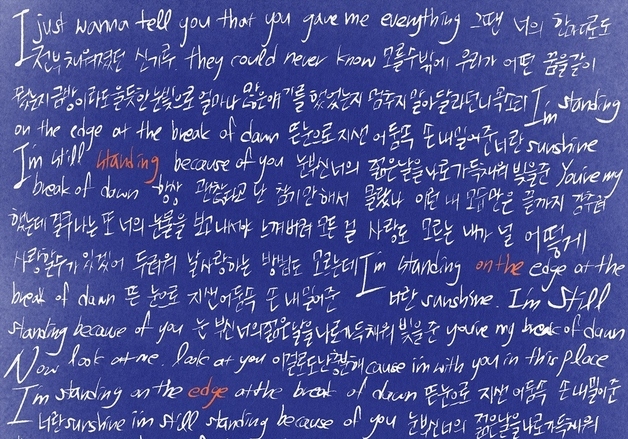 I just wanna tell you that you gave me everything 그땐 너의 한마디로도
전부 채워졌던 신기루 they could never know 모를 수밖에 우리가 어떤 꿈을 같이
꿨는지 금방이라도 울듯한 눈빛으로 얼마나 많은 얘기를 했었는지 멈추지 말아달라던 너의 목소리 I'm standing
on the edge at the break of dawn 뜬눈으로 지샌 어둠속 손 내밀어준 너란 sunshine
I'm still standing because of you 눈부신 너의 젊은날을 나로 가득채워 빛을 준 You're my
break of dawn 항상 괜찮다고 난 참기만해서 몰랐나 이런 내 모난 맘은 끝까지 감추려
했는데 결국 나는 또 너의 눈물을 보고 나서야 느껴버려 모든 걸 사랑도 모르는 내가 널 어떻게
사랑할수가 있겠어 두려워 날 사랑하는 방법도 모르는데 I'm standing on the edge at the
break of dawn 뜬 눈으로 지샌 어둠속 손 내밀어준 너란 sunshine. I'm Still
standing because of you 눈 부신 너의 젊은날을 나로 가득채워 빛을 준 you're my break of dawn
Now look at me. look at you 이걸로도 난 충분해 cause i'm with you in this place
I'm standing on the edge at the break of dawn 뜬눈으로 지샌 어둠속 손 내밀어준
너란 sunshine i'm still standing because of you 눈부신 너의 젊은날을 나로 가득채워